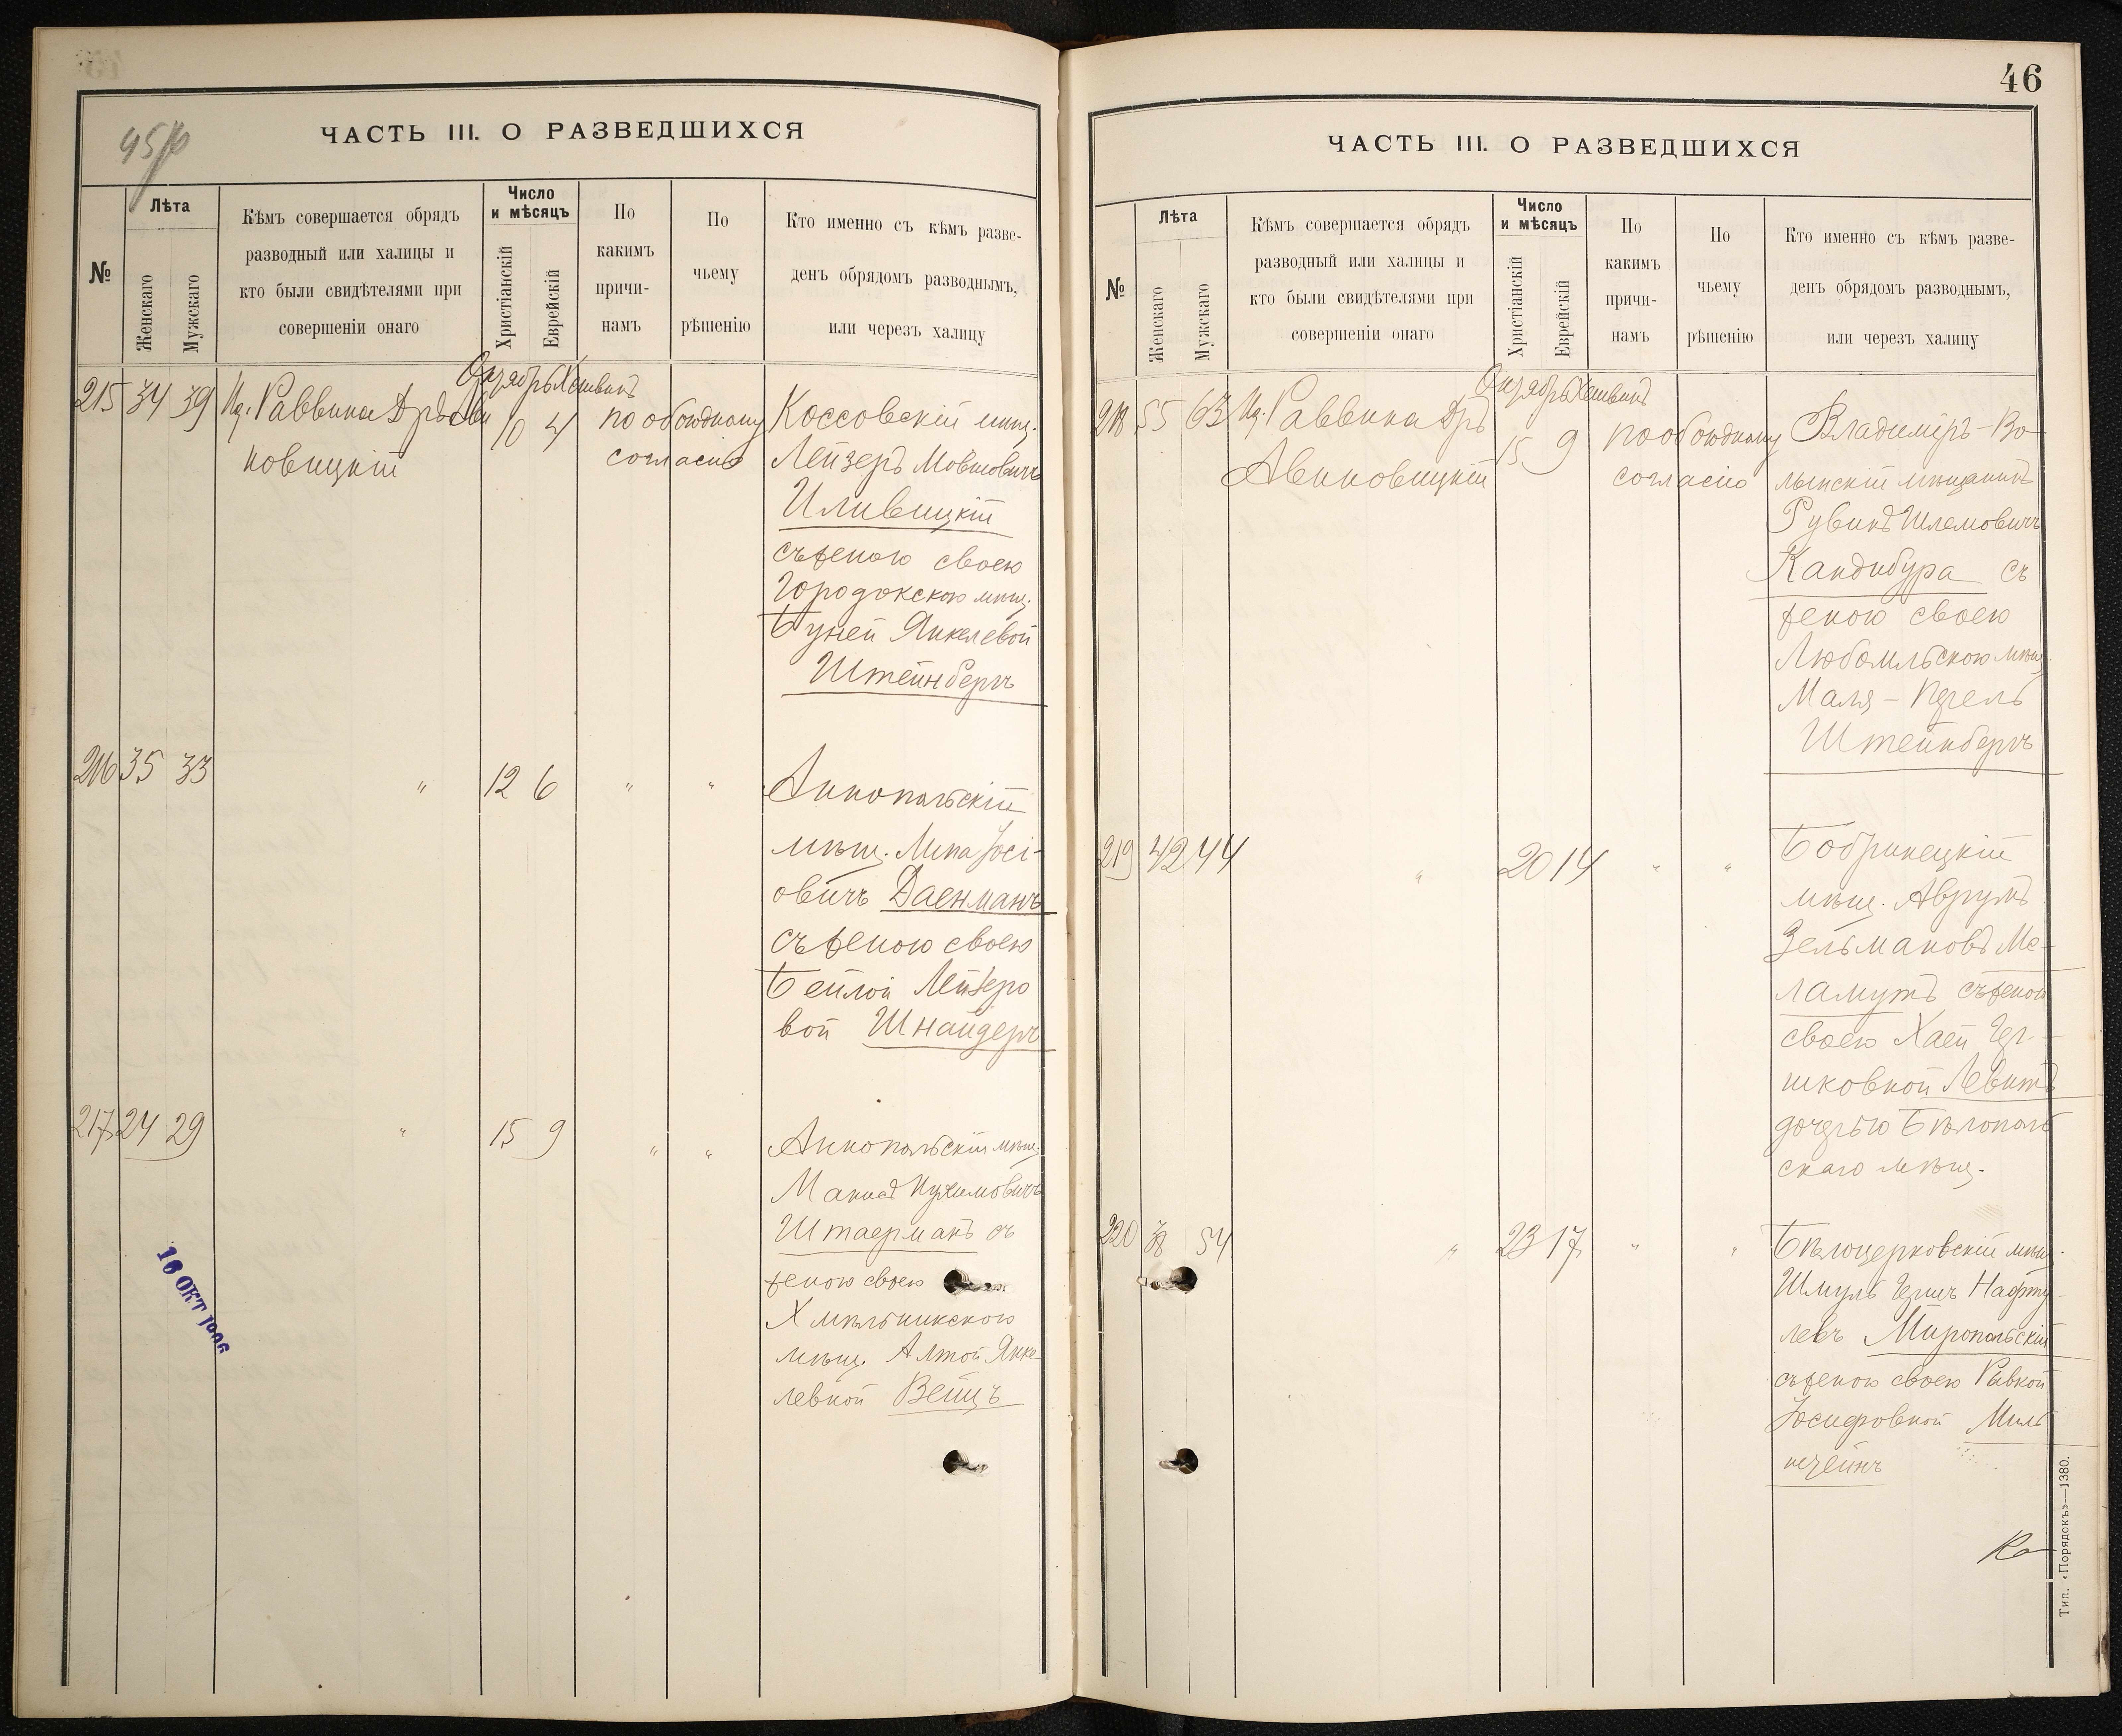 45/б
ЧАСТЬ III. О РАЗВЕДШИХСЯ
№
Лѣта
Женскаго
Мужскаго
Кѣмъ совершается обрядъ
разводный или халицы и
кто были свидѣтелями при
совершеніи онаго
Число
и мѣсяцъ
Христіанскій
Еврейскій
По
какимъ
причи-
намъ
По
чьему
рѣшенію
Кто именно съ кѣмъ разве-
денъ обрядомъ разводнымъ,
или черезъ халицу
Октябрь Хешванъ
215 34 39 Из. Раввина Дръ Ави 10 4 по обоюдному Коссовскій мѣщ.
новицкій согласію Лейзеръ Мовшовичъ
Иливицкій
съ женою своею
Городокскою мѣщ.
Буней Янкелевой
Штейнбергъ
216 35 33 " 12 6 " " Аннопольскій
мѣщ. Липа Іосі-
овичъ Даенманъ
съ женою своею
Бейлой Лейзеро
вой Шнайдеръ
217 24 29 " 15 9 " " Аннопольскій мѣщ.
Штаерманъ съ
женою своею
Хмѣльникскою
мѣщ. Алтой Янке
левной Вейцъ
16 ОКТ 1906
46
ЧАСТЬ III. О РАЗВЕДШИХСЯ
№
Лѣта
Женскаго
Мужскаго
Кѣмъ совершается обрядъ
разводный или халицы и
кто были свидѣтелями при
совершеніи онаго
Число
и мѣсяцъ
Христіанскій
Еврейскій
По
какимъ
причи-
намъ
По
чьему
рѣшенію
Кто именно съ кѣмъ разве-
денъ обрядомъ разводнымъ,
или черезъ халицу
Октябрь Хешванъ
218 55 63 Из. Раввина Дръ 15 9 по обоюдному Владиміръ-Во
Авиновицкій согласію лынскій мѣщанинъ
Рувинъ Шлемовичъ
Кандибура съ
женою своею
Любомльскою мѣщ.
Маля-
Штейнбергъ
219 42 44 " 20 14 " " Бобринецкій
мѣщ. Аврумъ
Зельмановъ Ме-
ламутъ съ женою
своею Хаей Гер-
шковной Левитъ
дочерью Бѣлополь
скаго мѣщ.
220 38 54 " 23 17 " " Бѣлоцерковскій мѣщ.
Шмуль Гершъ Нафту-
левъ Миропольскій
съ женою своею Ривкой
Іосифовной Миль
штейнъ
Тип. «Порядокъ»—1380.